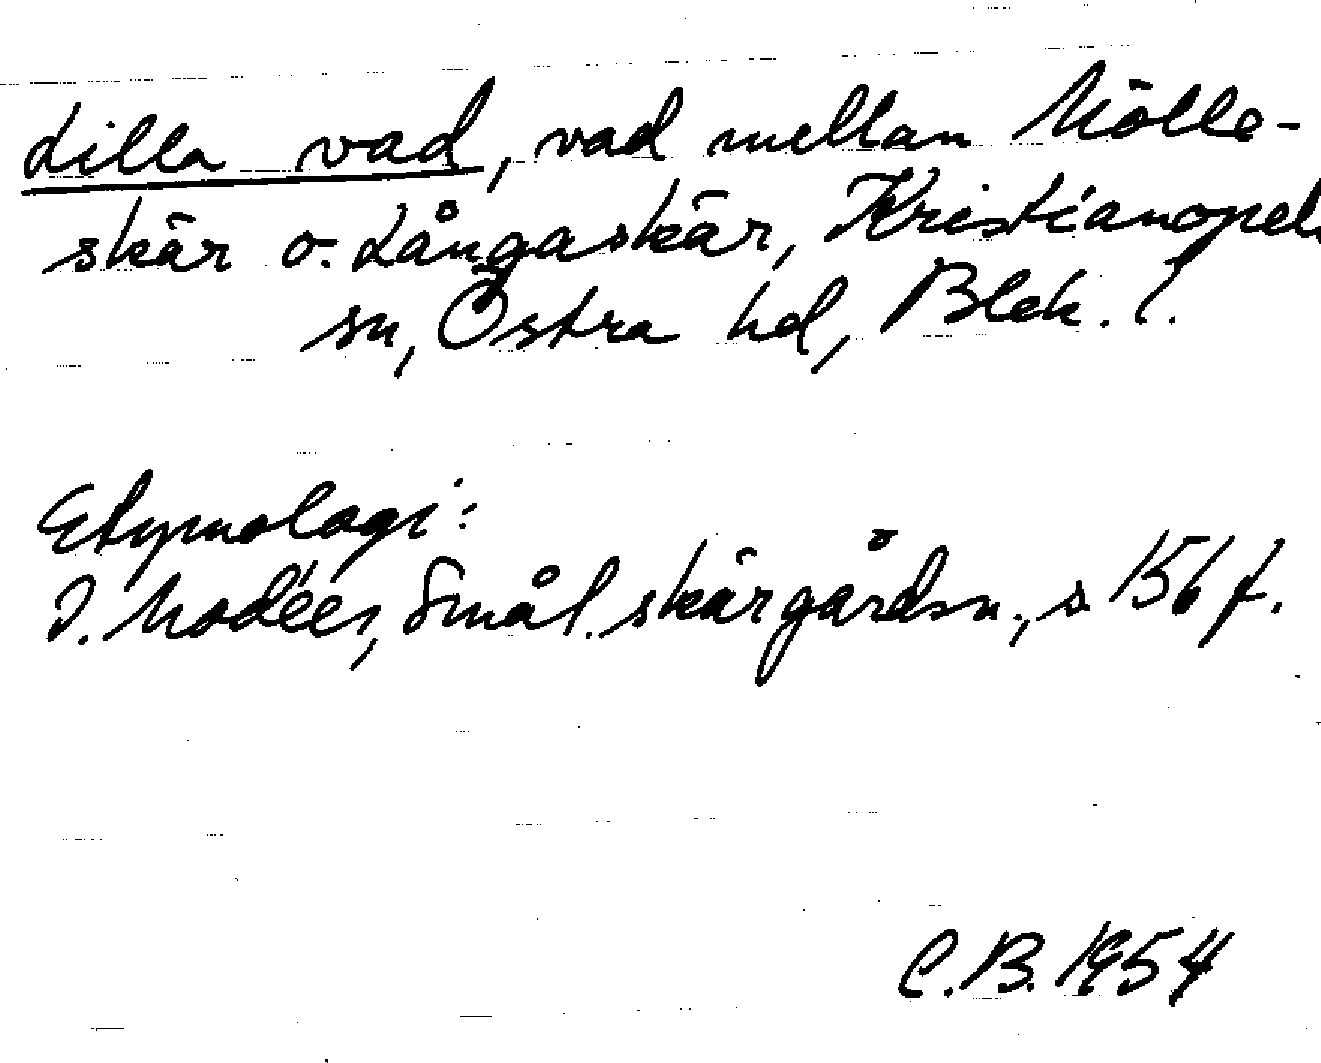 Lilla vad, vad mellan Mölle-
skär o. Långaskär, Kristianopels
sn, Östra hd, Blek. l.
Etymologi:
I. Modéer, Smål. skärgårdsn., s. 156 f.
C.B. 1954